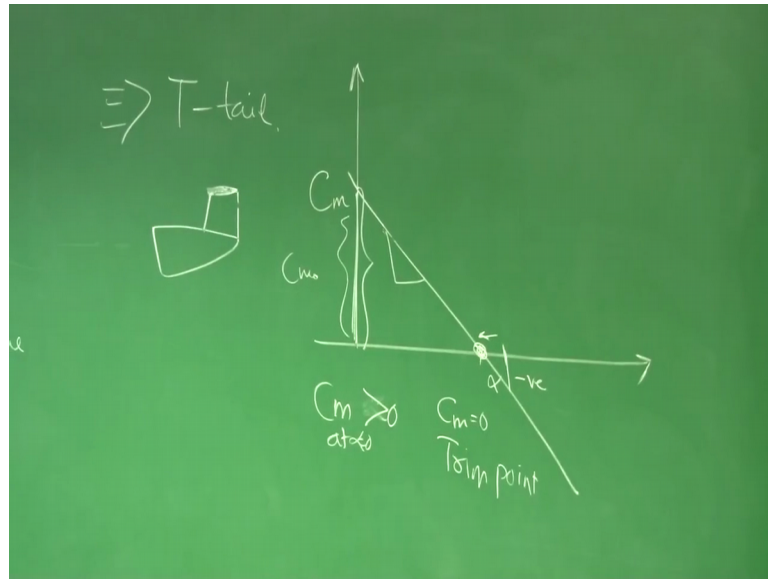 ⇒ T-tail.
Cm
Cm₀
α
-ve
Cm > 0
at α=0
Cm=0
Trim point